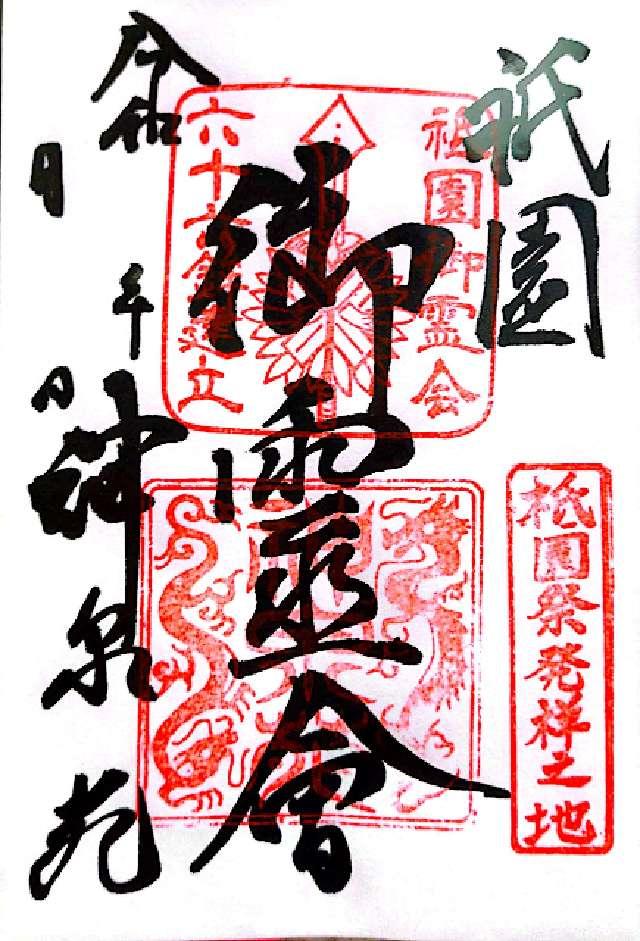 祇園
御靈會
令和 年 月 日
神泉苑
祇園御霊会
六十六鉾建立
祇園祭発祥之地